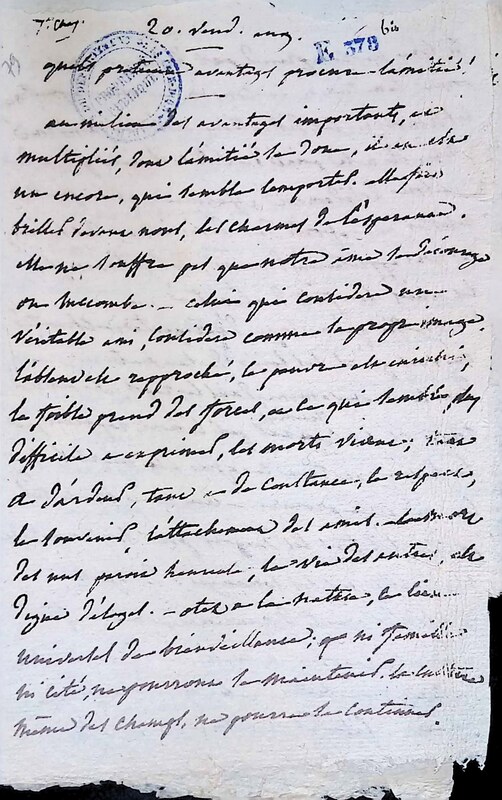 20. vend.
bis
E 378
79
quels précieux avantages procure l'amitié!
au milieu des avantages importants, et
multipliés, dont l'amitié se doue, il en est
un encore, qui semble l'emporter. elle fait
briller devant nous, les charmes de l'esperance.
elle ne souffre pas que notre âme se décourage
ou succombe. — celui qui considere un
véritable ami, considere comme sa propre image.
l'absent est rapproché, le pauvre est enrichi,
le foible prend des forces, et ce qui semble plus
difficile a exprimer, les morts vivent; tant
a d'ardeur, tant a de constance, le respect,
le souvenir, l'attachement des amis. la mort
des uns paroit heureuse, la vie des autres, est
digne d'éloges. — otez a la nature, le lien
universel de bienveillance; ni famille
ni cité, ne pourront se maintenir, la culture
même des champs, ne pourra se continuer.